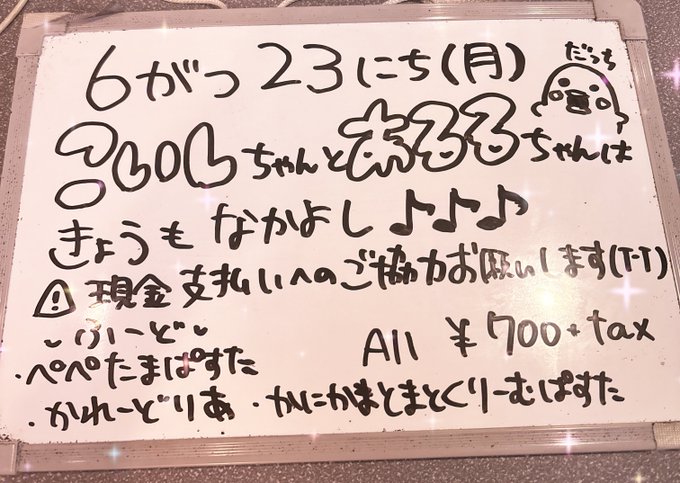 6がつ23にち(月)
だっち
ちゃんとあるるちゃんは
きょうもなかよし♪♪♪
⚠現金支払いへのご協力お願いします(T-T)
ふーど
All ¥700+tax
・ぺぺたまぱすた
・かれーどりあ ・かにかまとまとくりーむぱすた